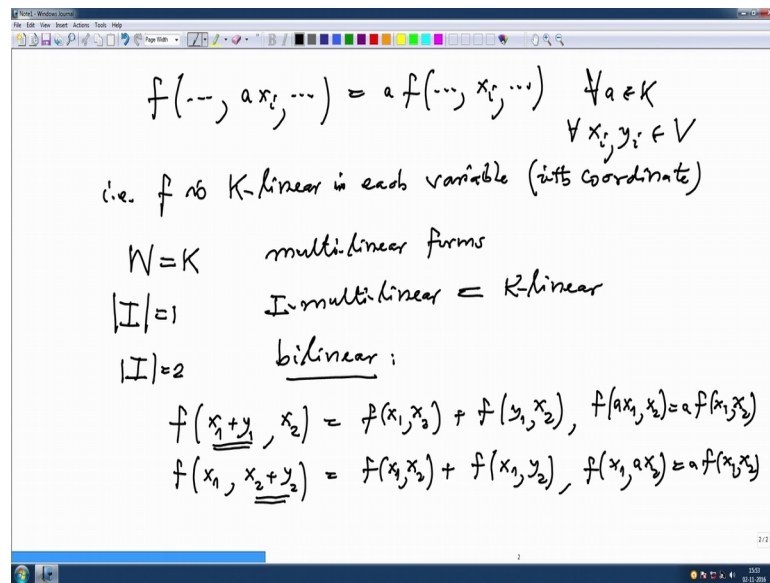 Note1 - Windows Journal
File Edit View Insert Actions Tools Help
Page Width
f(---, axᵢ, ---) = a f(---, xᵢ, ---) ∀a∈K
∀ xᵢ, yᵢ ∈ V
i.e. f is K-linear in each variable (i-th coordinate)
W = K multi-linear forms
|I|=1 I-multi-linear = K-linear
|I|=2 bilinear :
f(x₁+y₁, x₂) = f(x₁,x₂) + f(y₁,x₂), f(ax₁,x₂)=a f(x₁,x₂)
f(x₁, x₂+y₂) = f(x₁,x₂) + f(x₁,y₂), f(x₁,ax₂)=a f(x₁,x₂)
2/2
2
15:53
02-11-2016